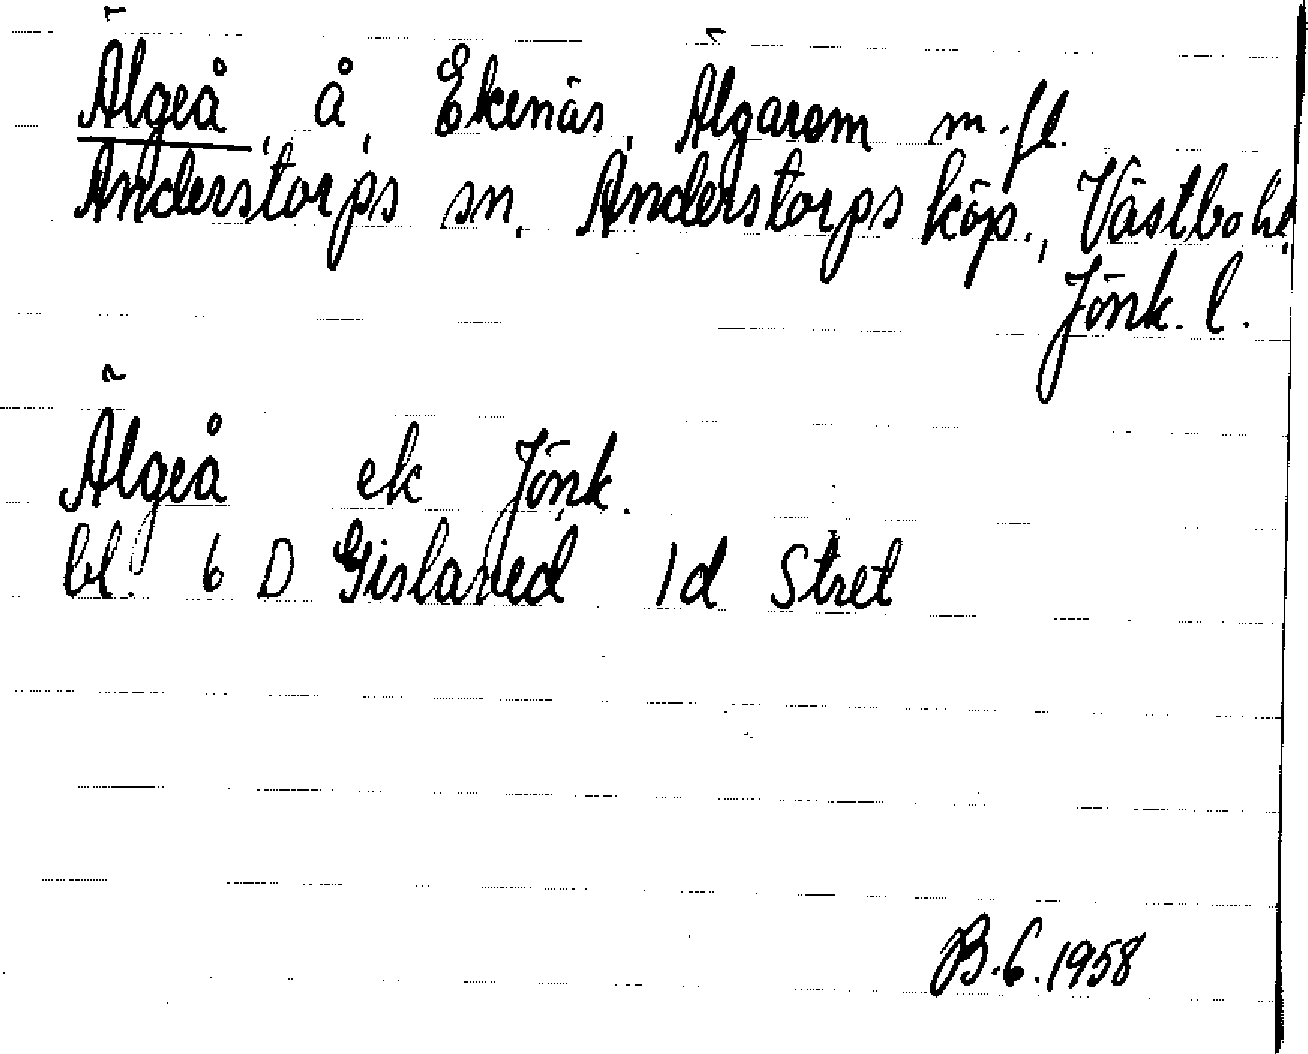 Älgeå, å, Ekenäs, Älgarem m.fl.
Anderstorps sn, Anderstorps köp., Västbo hd
Jönk. l.
Älgeå ek Jönk.
bl. 6 D Gislaved 1d Stret
B.G.1958